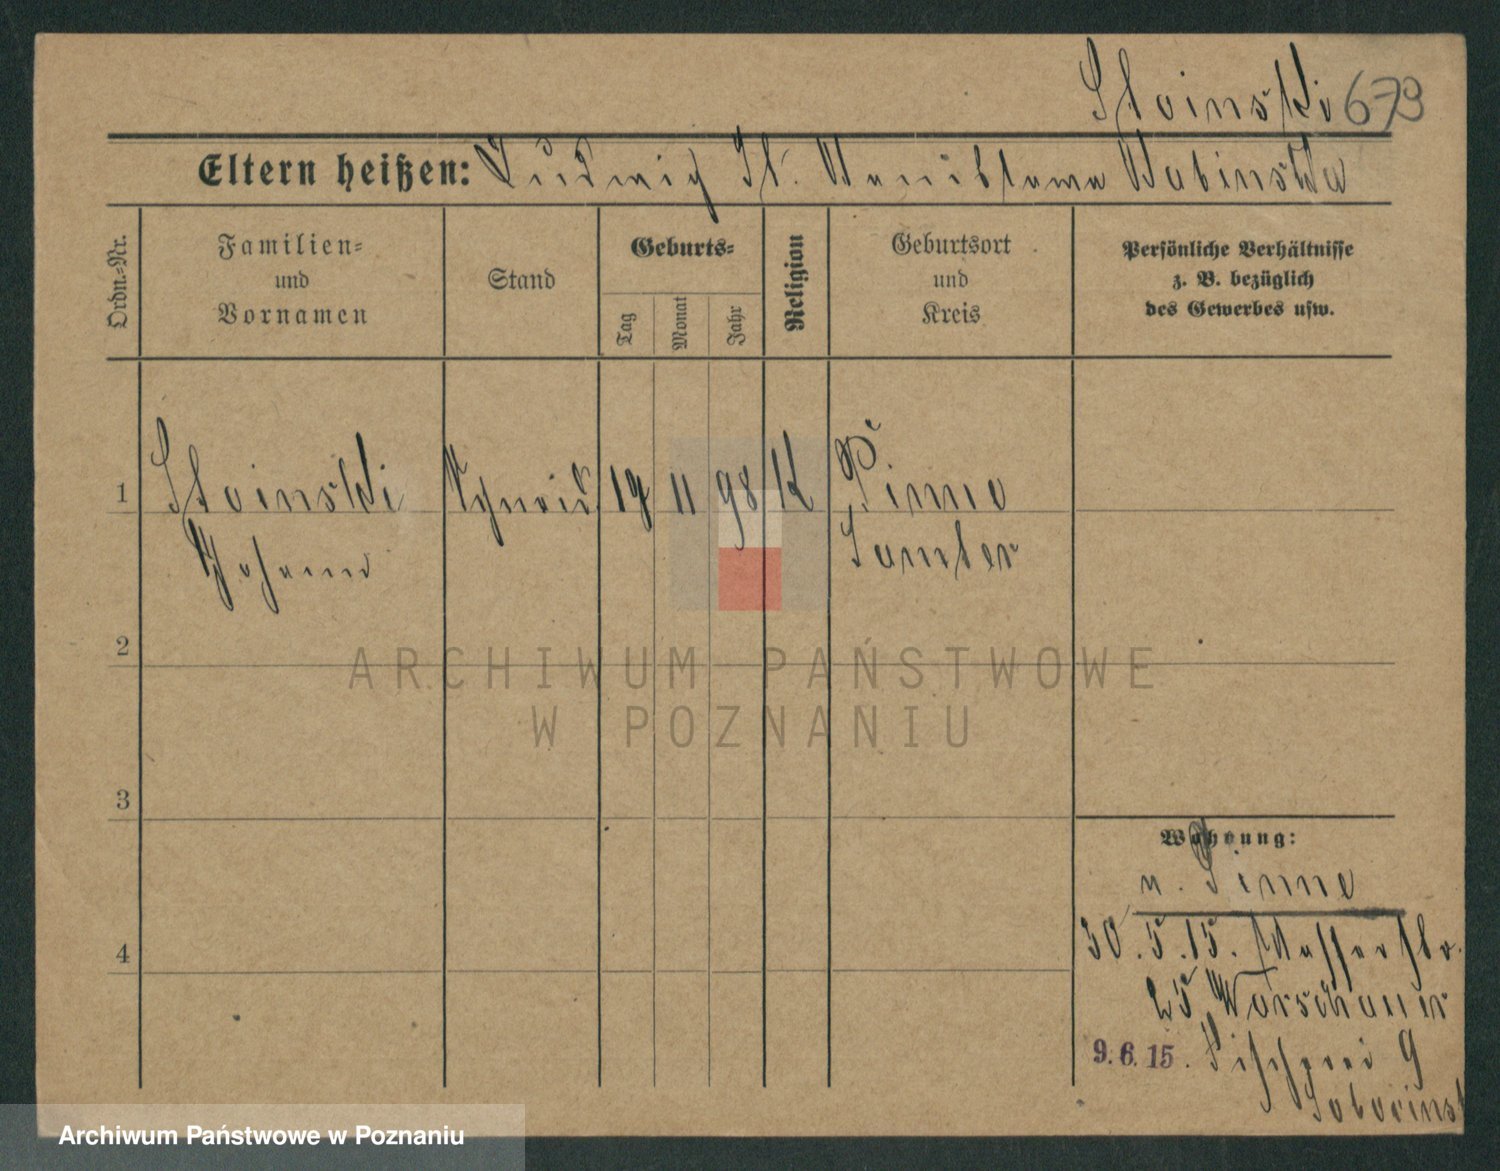 Stoinski 673
Eltern heißen: Ludwig St. Stanislawa Babinska
Ordn.=Nr.
Familien=
und
Vornamen
Stand
Geburts=
Tag
Monat
Jahr
Religion
Geburtsort
und
Kreis
Persönliche Verhältnisse
z. B. bezüglich
des Gewerbes usw.
1 Stoinski 19 11 98 K Pinne
Johann Samter
2
3
4
Wohnung:
n. Pinne
30.5.15. Wasserstr.
25 Warschauer
9.6.15. Fischerei 9
ARCHIWUM PAŃSTWOWE
W POZNANIU
Archiwum Państwowe w Poznaniu